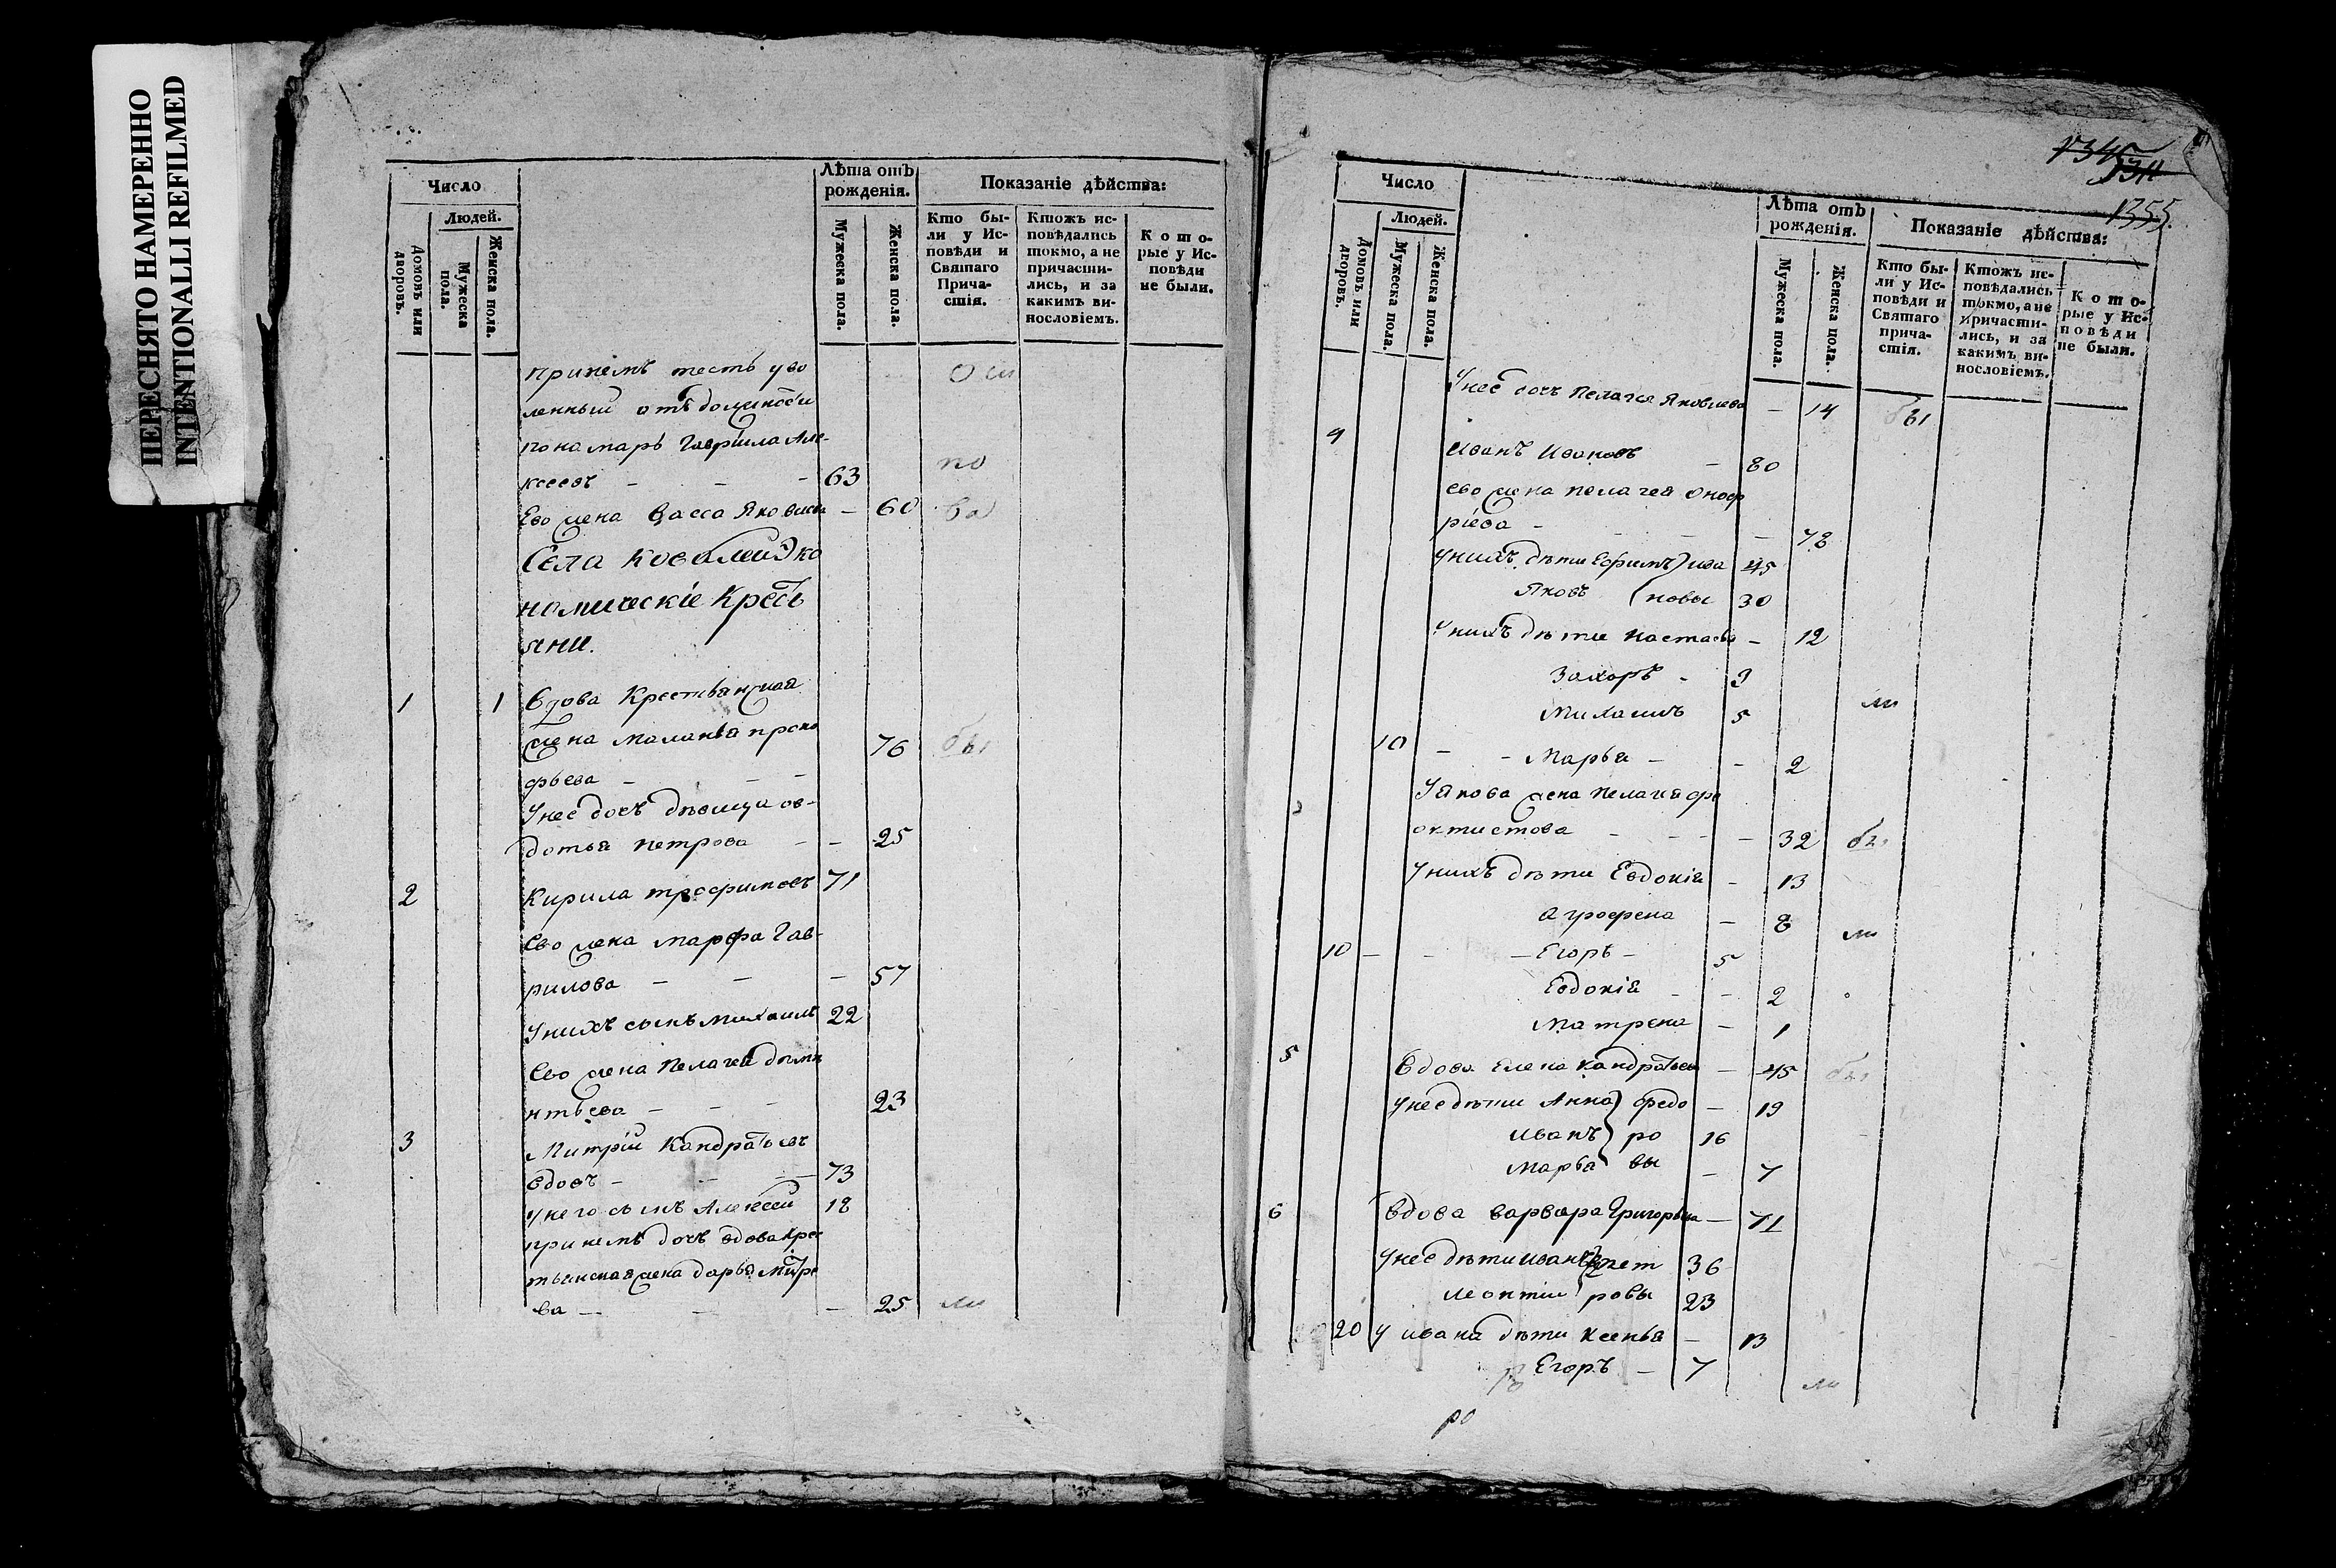 ПЕРЕСНЯТО НАМЕРЕННО
INTENTIONALLI REFILMED
Число
Лѣта отъ рожденія.
Показаніе дѣйства:
Домовъ или дворовъ.
Людей.
Мужеска пола.
Женска пола.
Мужеска пола.
Женска пола.
Кто были у Исповѣди и Святаго Причастія.
Ктожъ исповѣдались токмо, а не причастились, и за какимъ винословіемъ.
Которые у Исповѣди не были.
принемъ тесть уво
ленный отъ должности
пономарь Гаврила Але-
ксеевъ - - - 63
Ево жена Васса Яковлева - 60
Села Ковалей Эко
номическіе Кресть
яни.
1 1 Вдова Крестьянская
жена Маланья Проко 76 бы
фьева - - -
Унее дочь дѣвица ов-
дотья Петрова - - 25
2 Кирила Трофимовъ 71
Ево жена Марфа Гав-
рилова - - - 57
Унихъ сынъ Михаилъ 22
Ево жена Пелагея
нтьева - - - 23
3 Митрій Кандратьевъ
вдовъ - - - 73
Унего сынъ Алексей 18
принемъ дочь вдова крес
тьянская жена Дарья Митре
ва - - - 25 ли
1345
1355.
Число
Лѣта отъ рожденія.
Показаніе дѣйства:
Домовъ или дворовъ.
Людей.
Мужеска пола.
Женска пола.
Мужеска пола.
Женска пола.
Кто были у Исповѣди и Святаго причастія.
Ктожъ исповѣдались токмо, а не причастились, и за какимъ винословіемъ.
Которые у Исповѣди не были.
Унее дочь Пелагея Яковлева - 14 бы
4 Иванъ Ивановъ - 80
ево жена Пелагея Оноф
ріева - - - - 78
Унихъ дѣти Ефимъ } ива 45
Яковъ { новы 30
Унихъ дѣти Настасья - 12
Захаръ - 9
Михаилъ 5 ли
10 - - Марья - - 2
У Якова жена Пелагея Фе
октистова - - - - 32 бы
Унихъ дѣти Евдокія - 13
Агрофена - 8 ли
10 - - - Егоръ - 5
Евдокія - - 2
Матрена - 1
5 Вдова Елена Кандратьева - 45 бы
Унее дѣти Анна } Федо - 19
Иванъ } ро 16
Марья вы - 7
6 Вдова Варвара Григорьева - 71
Унее дѣти Иванъ } пет 36
Леонтій ровы 23
20 У Ивана дѣти Ксенья - 13
Егоръ - 7 ли
ро